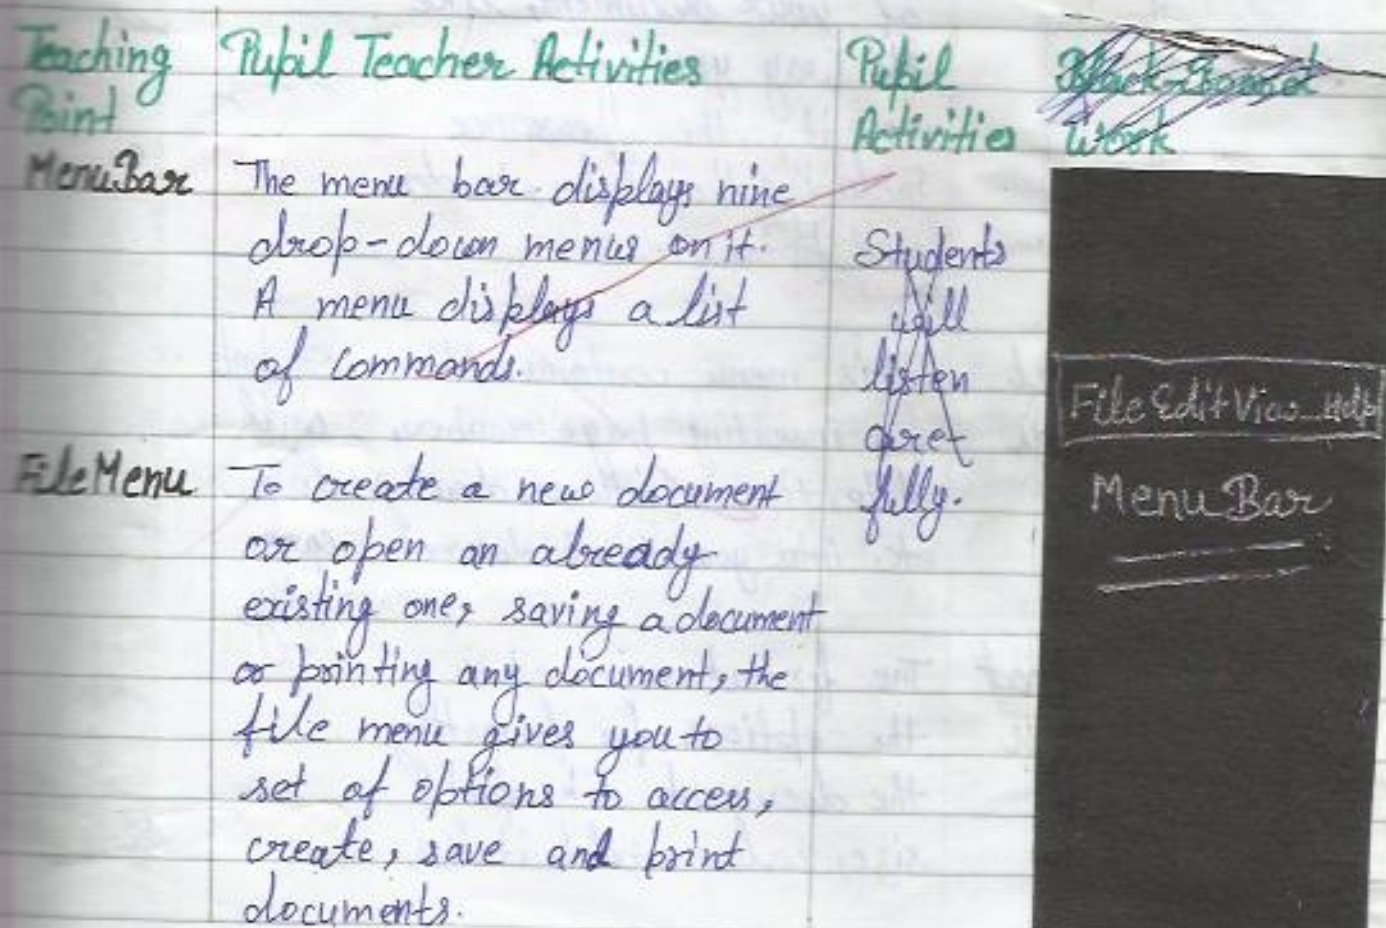 Teaching Point
Pupil Teacher Activities
Pupil Activities
Black-Board Work
Menu Bar
The menu bar displays nine
drop-down menus on it.
A menu displays a list
of commands.
Students
will
listen
caret
fully.
File Edit View...Help
Menu Bar
File Menu
To create a new document
or open an already
existing one, saving a document
or printing any document, the
file menu gives you to
set of options to access,
create, save and print
documents.